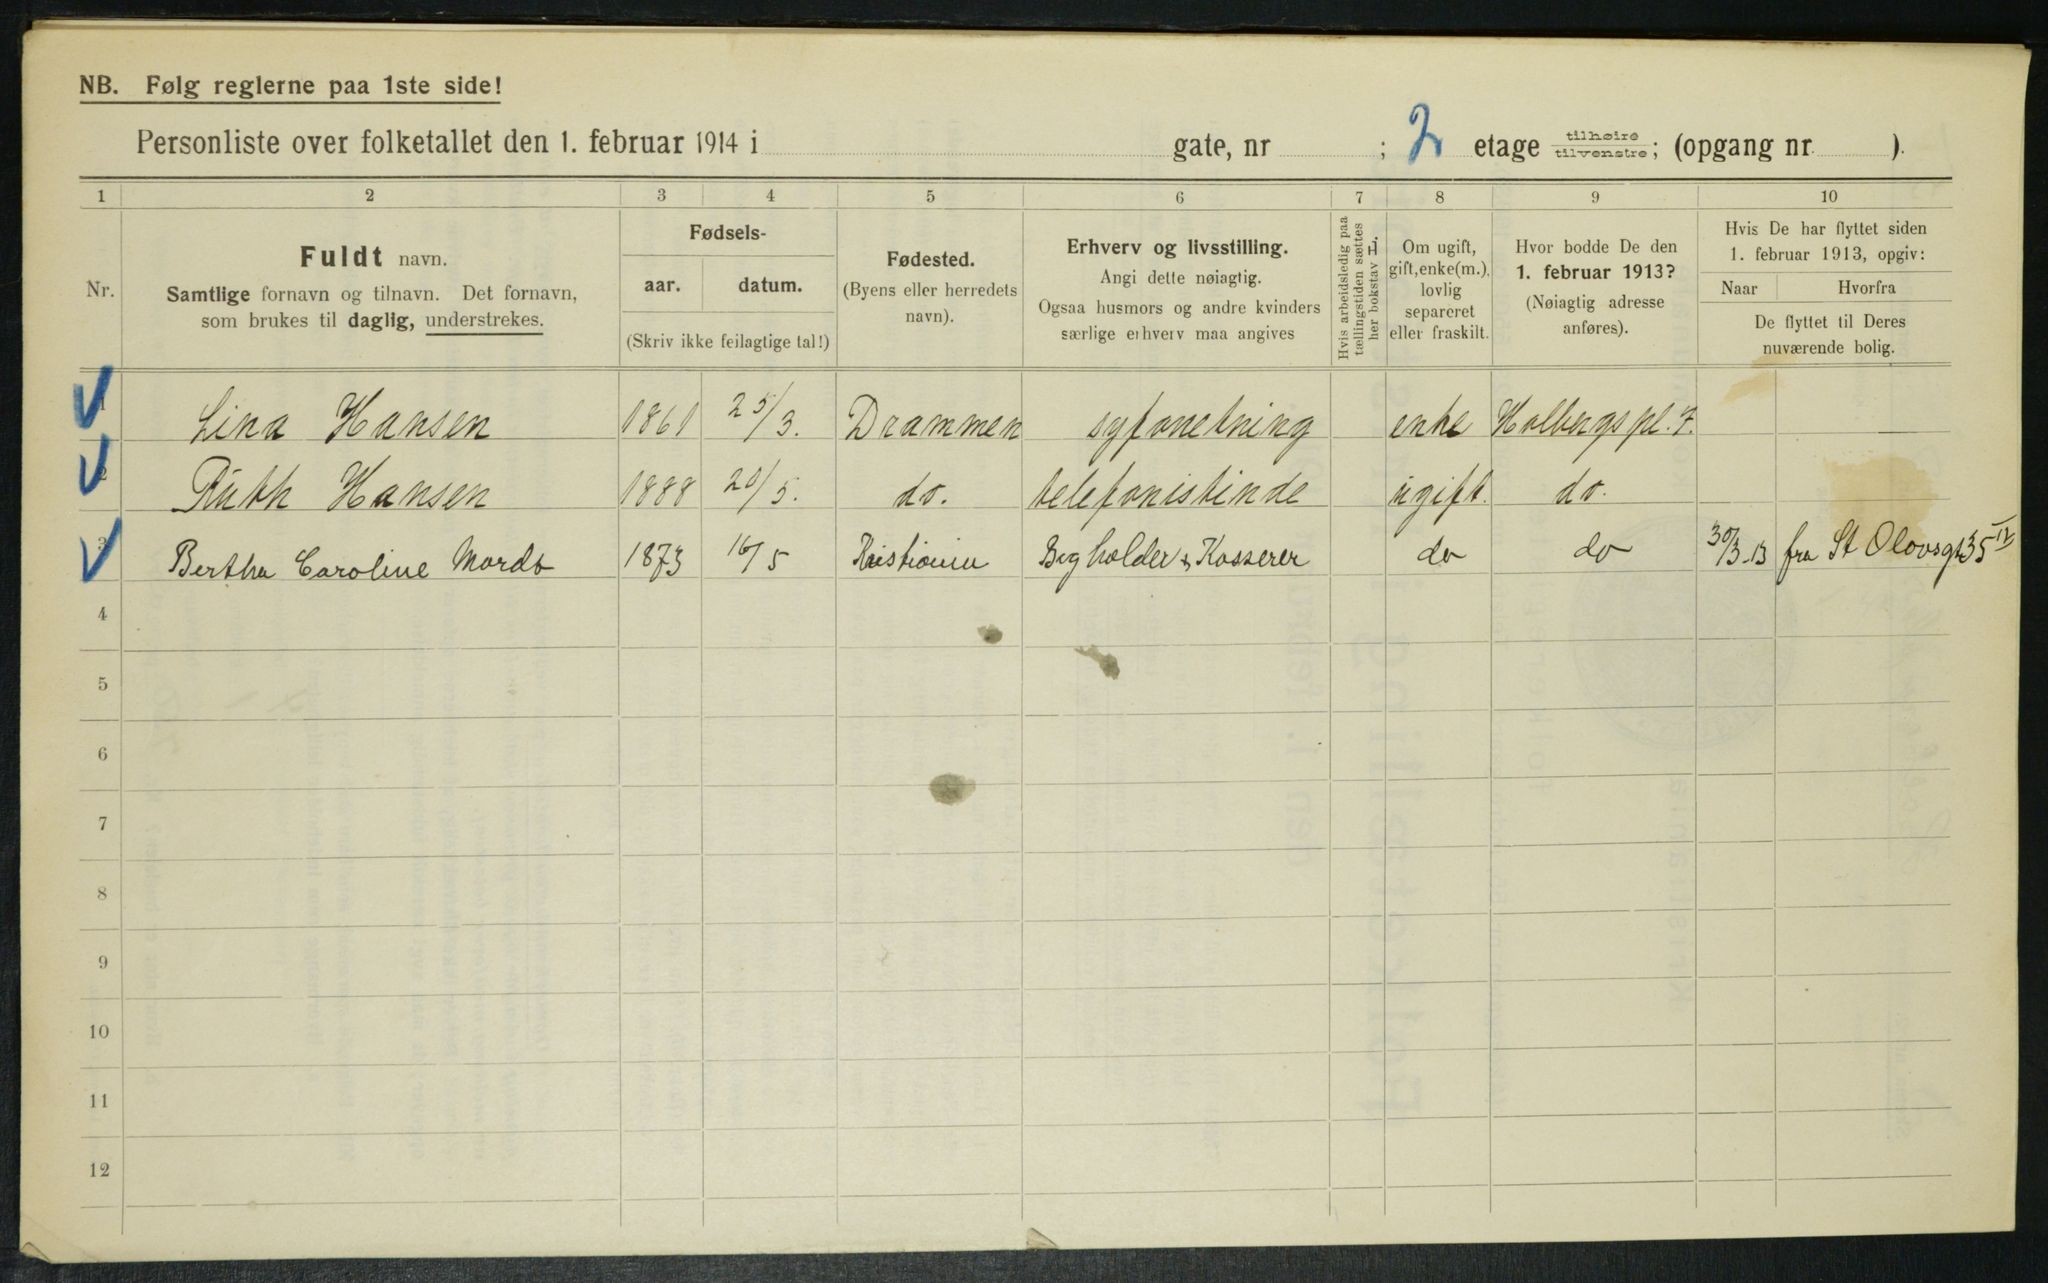 NB. Følg reglerne paa 1ste side!
Personliste over folketallet den 1. februar 1914 i gate, nr ; 2 etage tilhøire tilvenstre; (opgang nr ).
1 2 3 4 5 6 7 8 9 10
Nr.
Fuldt navn.
Samtlige fornavn og tilnavn. Det fornavn,
som brukes til daglig, understrekes.
Fødsels-
aar. datum.
(Skriv ikke feilagtige tal!)
Fødested.
(Byens eller herredets
navn).
Erhverv og livsstilling.
Angi dette nøiagtig.
Ogsaa husmors og andre kvinders
særlige erhverv maa angives
Hvis arbeidsledig paa
tællingstiden sættes
her bokstav
Om ugift,
gift, enke(m.),
lovlig
separeret
eller fraskilt.
Hvor bodde De den
1. februar 1913?
(Nøiagtig adresse
anføres).
Hvis De har flyttet siden
1. februar 1913, opgiv:
Naar Hvorfra
De flyttet til Deres
nuværende bolig.
1 Lina Hansen 1861 25/3. Drammen syforretning enke Holbergs pl. 7.
2 Ruth Hansen 1888 20/5. do. telefonistinde ugift. do.
3 Bertha Caroline 1873 16/5 Kristiania Bogholder & Kasserer do do 30/3-13 fra St Olavsgt 35
4
5
6
7
8
9
10
11
12